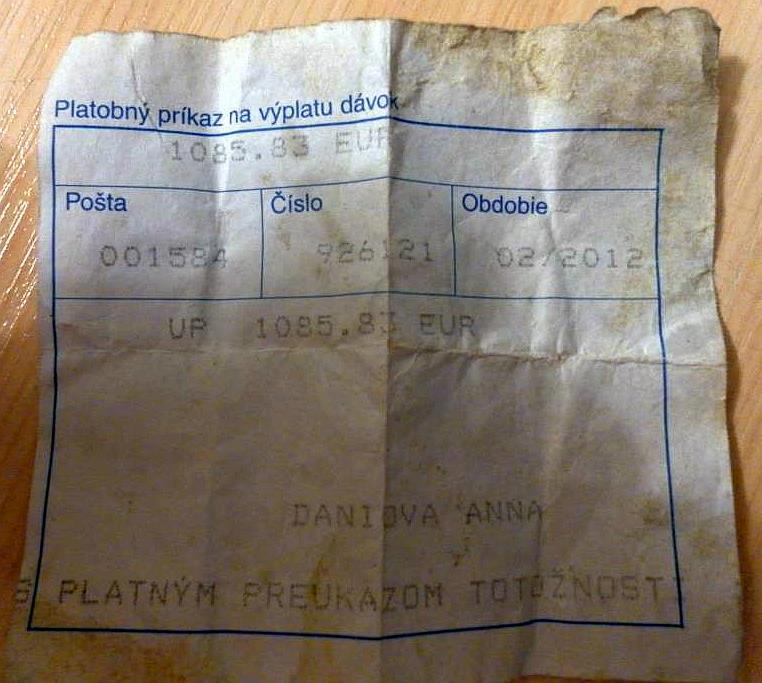 Platobný príkaz na výplatu dávok
1085.83 EUR
Pošta Číslo Obdobie
001584 926121 02/2012
UP 1085.83 EUR
DANIOVA ANNA
PLATNÝM PREUKAZOM TOTOŽNOSTI